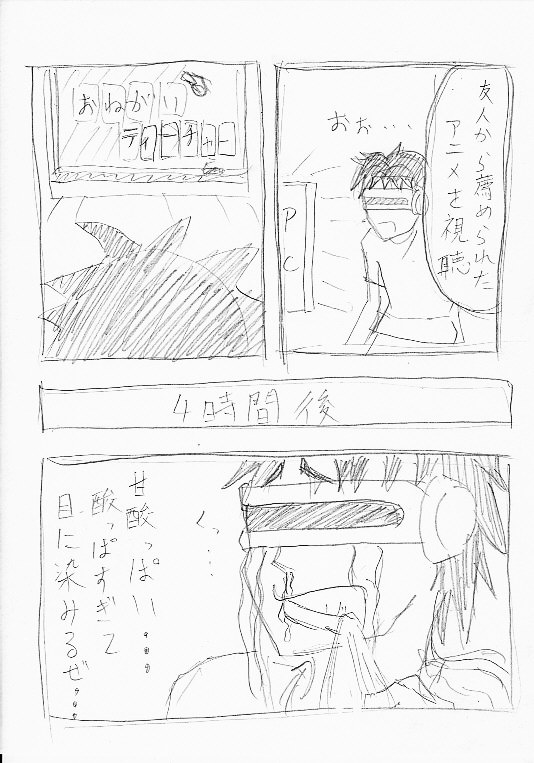 友人から薦められた
アニメを視聴
おお・・・
PC
おねがい
ティーチャー
4時間後
くっ・・・
甘酸っぱい・・・
酸っぱすぎて
目に染みるぜ・・・